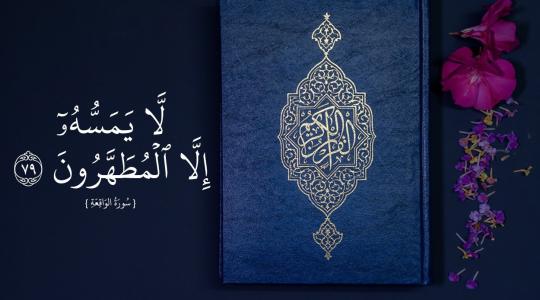 لَّا يَمَسُّهُۥٓ
إِلَّا ٱلْمُطَهَّرُونَ ٧٩
{ سُورَةُ الوَاقِعَةِ }
القرآن الكريم